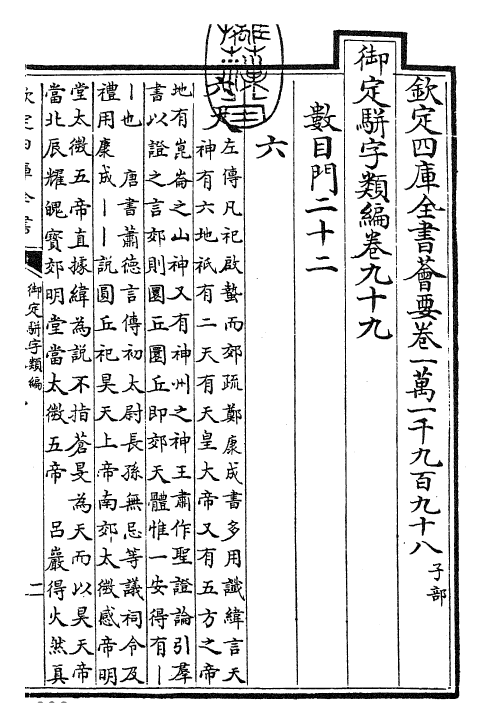 欽定四庫全書薈要卷一萬一千九百九十八 子部
御定駢字類編卷九十九
數目門二十二
六
六天
左傳凡祀啟蟄而郊疏鄭康成書多用讖緯言天
神有六地祇有二天有天皇大帝又有五方之帝
地有崑崙之山神又有神州之神王肅作聖證論引羣
書以證之言郊則圜丘圜丘即郊天體惟一安得有〡
〡也 唐書蕭德言傳初太尉長孫無忌等議祠令及
禮用康成〡〡說圓丘祀昊天上帝南郊太微感帝明
堂太微五帝直據緯為說不指蒼旻為天而以昊天帝
當北辰耀魄寳郊明堂當太微五帝 呂巖得火然真
欽定四庫全書
御定駢字類編